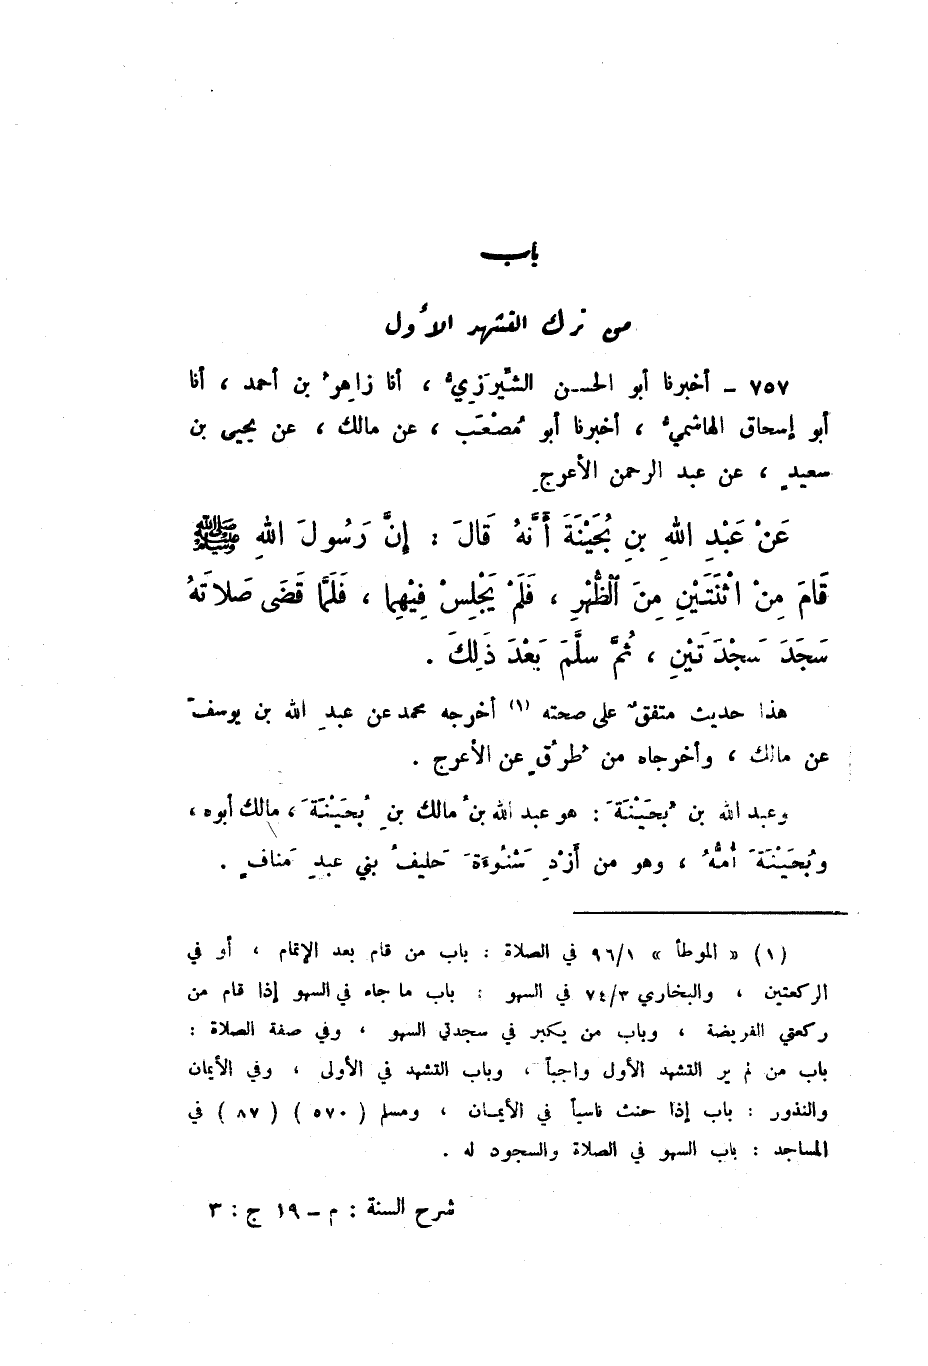 باب
من ترك التشهد الأول
٧٥٧ – أخبرنا أبو الحسن الشِّيرَزِيُّ ، أنا زاهرُ بن أحمد ، أنا
أبو إسحاق الهاشميُّ ، أخبرنا أبو مُصْعَب ، عن مالك ، عن يحيى بن
سعيدٍ ، عن عبد الرحمن الأعرجِ
عَنْ عَبْدِ اللهِ بنِ بُحَيْنَةَ أَنَّهُ قَالَ : إِنَّ رَسُولَ اللهِ ﷺ
قَامَ مِنْ اثْنَتَيْنِ مِنَ ٱلظُّهْرِ ، فَلَمْ يَجْلِسْ فِيْهِما ، فَلَمَّا قَضَى صَلاتَهُ
سَجَدَ سَجْدَتَيْنِ ، ثُمَّ سلَّمَ بَعْدَ ذَلِكَ .
هذا حديث متفقٌ على صحته (١) أخرجه محمد عن عبدِ الله بن يوسفَ
عن مالك ، وأخرجاه من طُرُقٍ عن الأعرج .
وعبد الله بن بُحَيْنَةَ : هو عبد الله بنُ مالك بنِ بُحَيْنَةَ ، مالك أبوه ،
وبُحَيْنَةَ أمُّهُ ، وهو من أَزْدِ شَنُوءَةَ حَليفُ بني عبدِ مَنافٍ .
(١) « الموطأ » ٩٦/١ في الصلاة : باب من قام بعد الإتمام ، أو في
الركعتين ، والبخاري ٧٤/٣ في السهو : باب ما جاء في السهو إذا قام من
ركعتي الفريضة ، وباب من يكبر في سجدتي السهو ، وفي صفة الصلاة :
باب من لم ير التشهد الأول واجباً ، وباب التشهد في الأولى ، وفي الأيمان
والنذور : باب إذا حنث ناسياً في الأيمان ، ومسلم ( ٥٧٠ ) ( ٨٧ ) في
المساجد : باب السهو في الصلاة والسجود له .
شرح السنة : م – ١٩ ج : ٣